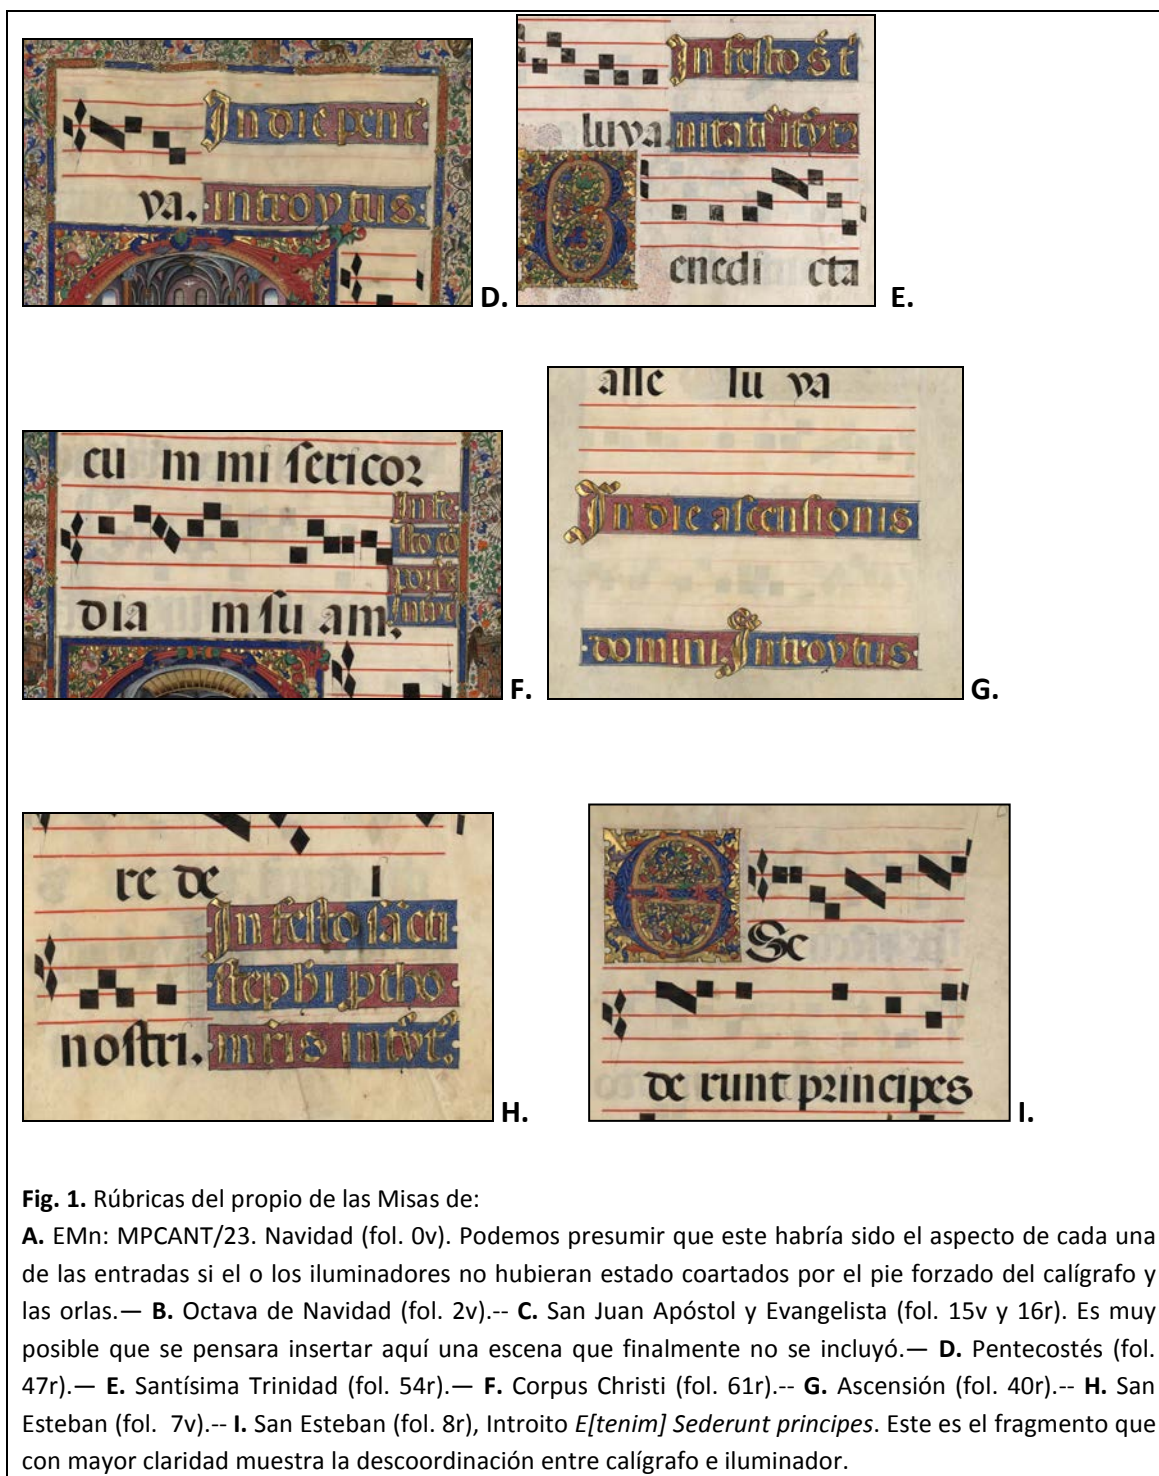 In die pent
ya. introytus
D.
In festo sct
luya. nitatis itytz
E.
enedi cta
cu m mi sericor
In fe
sto co
dia m su am.
F.
alle lu ya
In die ascensionis
domini Introytus
G.
re de i
In festo sacti
nostri. mris intyt
H.
Se
de runt principes
I.
Fig. 1. Rúbricas del propio de las Misas de:
A. EMn: MPCANT/23. Navidad (fol. 0v). Podemos presumir que este habría sido el aspecto de cada una
de las entradas si el o los iluminadores no hubieran estado coartados por el pie forzado del calígrafo y
las orlas.— B. Octava de Navidad (fol. 2v).-- C. San Juan Apóstol y Evangelista (fol. 15v y 16r). Es muy
posible que se pensara insertar aquí una escena que finalmente no se incluyó.— D. Pentecostés (fol.
47r).— E. Santísima Trinidad (fol. 54r).— F. Corpus Christi (fol. 61r).-- G. Ascensión (fol. 40r).-- H. San
Esteban (fol. 7v).-- I. San Esteban (fol. 8r), Introito E[tenim] Sederunt principes. Este es el fragmento que
con mayor claridad muestra la descoordinación entre calígrafo e iluminador.